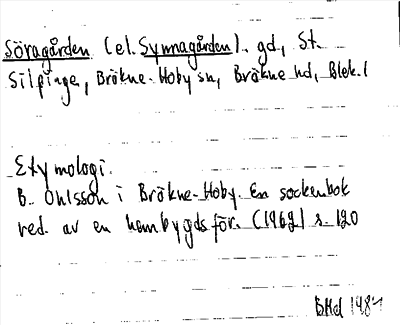 Söragården (el. Symnagården). gd, St.
Silpinge, Bräkne-Hoby sn, Bräkne hd, Blek. l
Etymologi.
B. Ohlsson i Bräkne-Hoby. En sockenbok
red. av en hembygdsför. (1962) s. 120
BHd